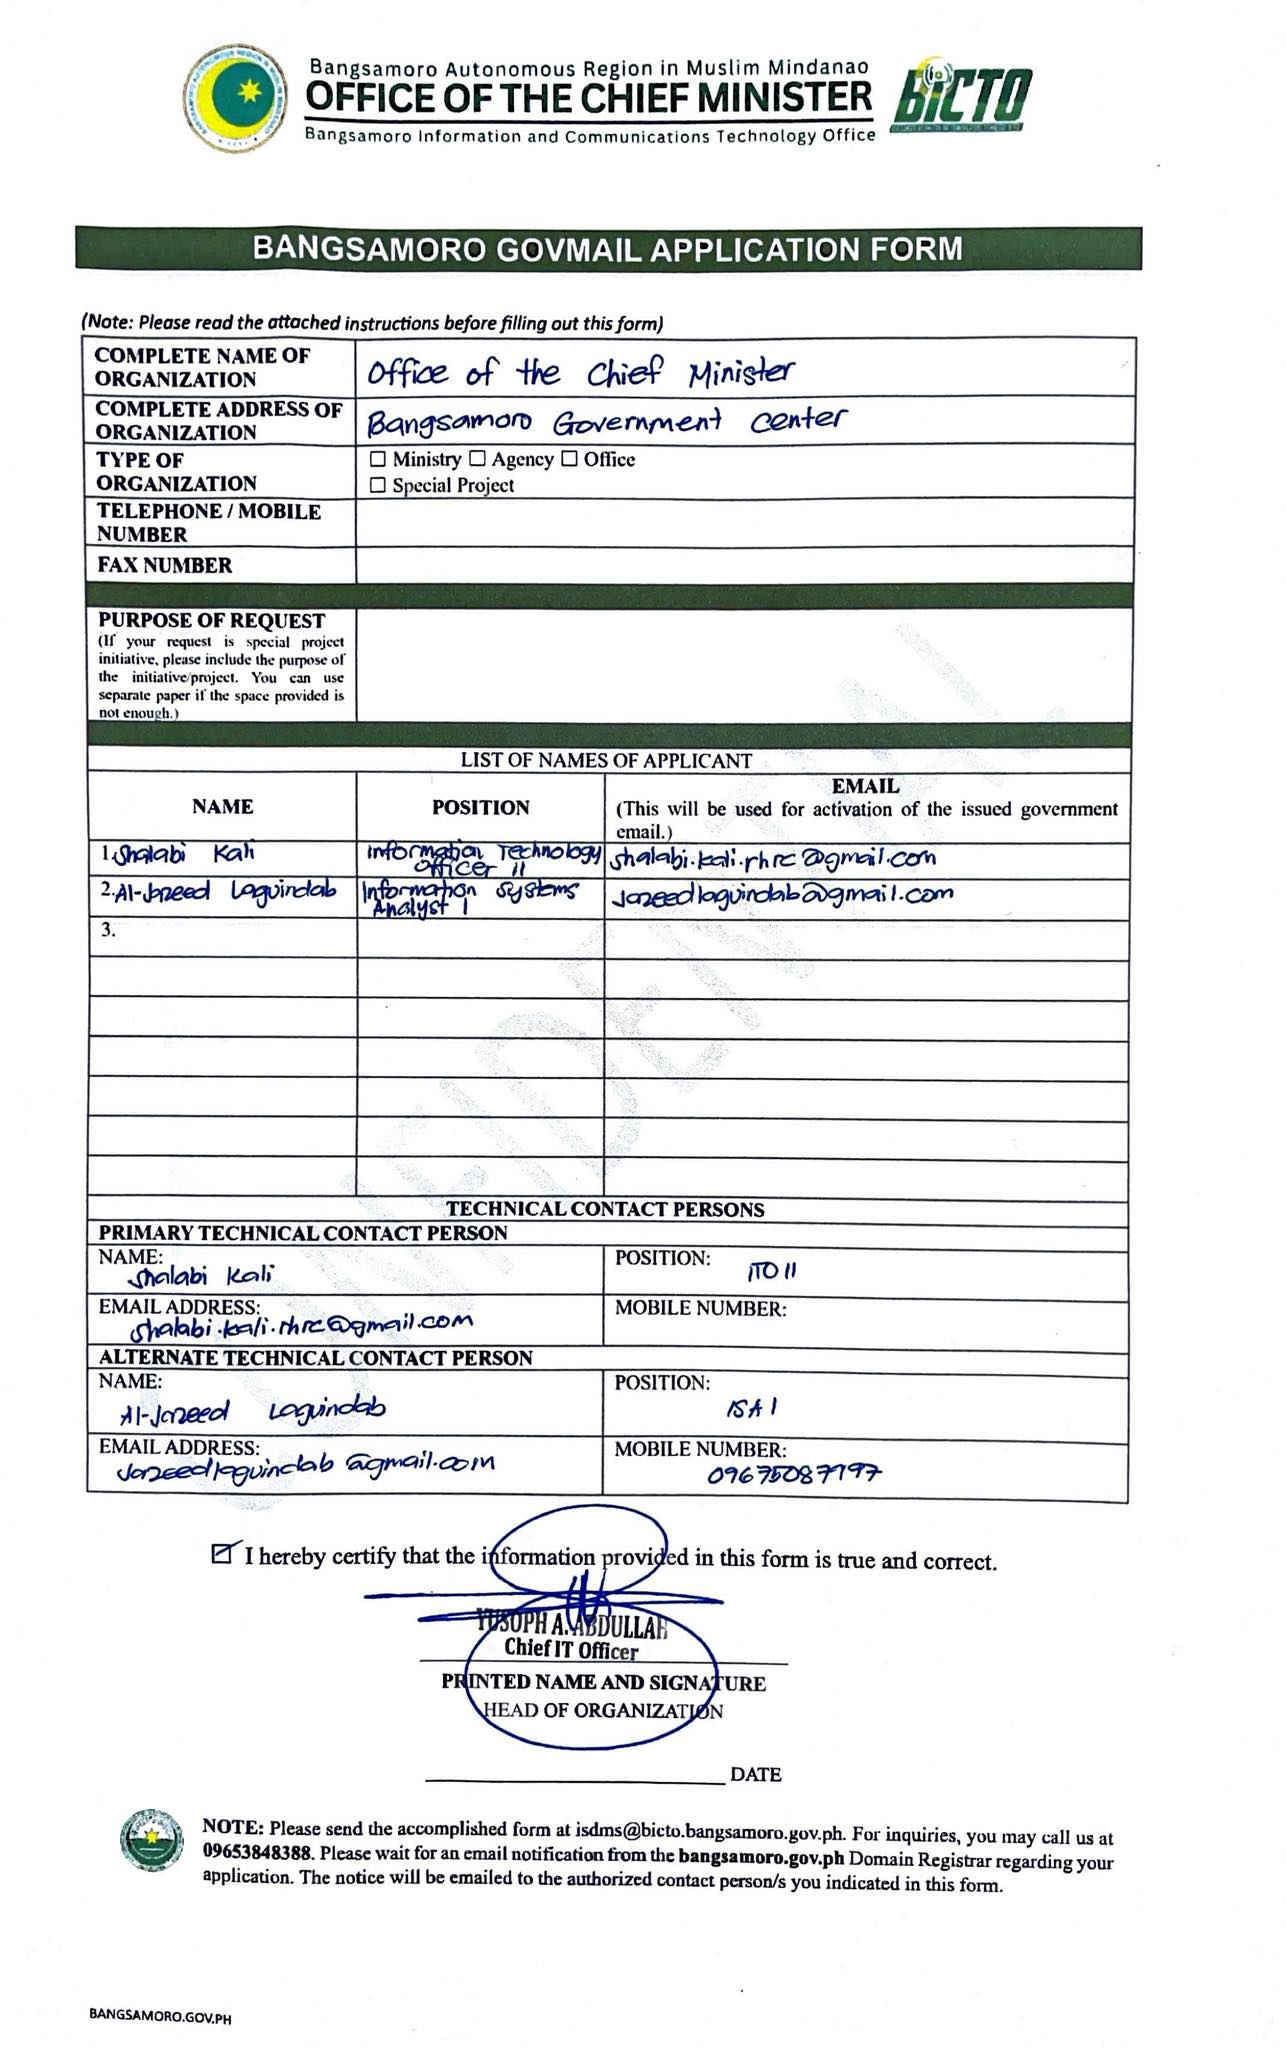 Bangsamoro Autonomous Region in Muslim Mindanao
OFFICE OF THE CHIEF MINISTER
Bangsamoro Information and Communications Technology Office
BiCTO
BANGSAMORO GOVMAIL APPLICATION FORM
(Note: Please read the attached instructions before filling out this form)
COMPLETE NAME OF
ORGANIZATION
Office of the Chief Minister
COMPLETE ADDRESS OF
ORGANIZATION
Bangsamoro Government Center
TYPE OF
ORGANIZATION
☐ Ministry ☐ Agency ☐ Office
☐ Special Project
TELEPHONE / MOBILE
NUMBER
FAX NUMBER
PURPOSE OF REQUEST
(If your request is special project
initiative, please include the purpose of
the initiative/project. You can use
separate paper if the space provided is
not enough.)
LIST OF NAMES OF APPLICANT
NAME
POSITION
EMAIL
(This will be used for activation of the issued government
email.)
1. Shalabi Kali
Information Technology
Officer II
shalabi.kali.rhrc@gmail.com
2. Al-Jazeed Laguindab
Information Systems
Analyst I
Jazeedlaguindab@gmail.com
3.
CONFIDENTIAL
TECHNICAL CONTACT PERSONS
PRIMARY TECHNICAL CONTACT PERSON
NAME:
Shalabi Kali
POSITION:
ITO II
EMAIL ADDRESS:
shalabi.kali.rhrc@gmail.com
MOBILE NUMBER:
ALTERNATE TECHNICAL CONTACT PERSON
NAME:
Al-Jazeed Laguindab
POSITION:
ISA I
EMAIL ADDRESS:
Jazeedlaguindab@gmail.com
MOBILE NUMBER:
☑ I hereby certify that the information provided in this form is true and correct.
YUSOPH A. ABDULLAH
Chief IT Officer
PRINTED NAME AND SIGNATURE
HEAD OF ORGANIZATION
DATE
NOTE: Please send the accomplished form at isdms@bicto.bangsamoro.gov.ph. For inquiries, you may call us at
09653848388. Please wait for an email notification from the bangsamoro.gov.ph Domain Registrar regarding your
application. The notice will be emailed to the authorized contact person/s you indicated in this form.
BANGSAMORO.GOV.PH